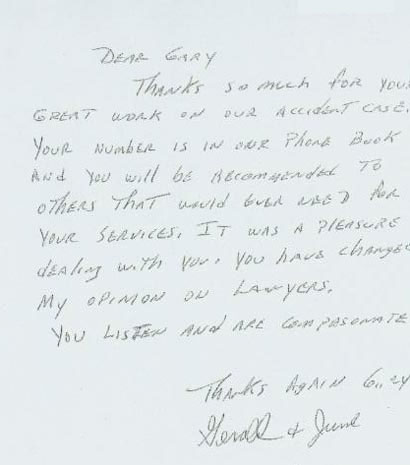 DEAR GARY
THANKS SO MUCH FOR YOUR
GREAT WORK ON OUR ACCIDENT CASE.
YOUR NUMBER IS IN OUR PHONE BOOK
AND YOU WILL BE RECOMMENDED TO
OTHERS THAT WOULD EVER NEED FOR
YOUR SERVICES. IT WAS A PLEASURE
DEALING WITH YOU. YOU HAVE CHANGED
MY OPINION ON LAWYERS.
YOU LISTEN AND ARE COMPASONATE
THANKS AGAIN GARY
Gerald & June